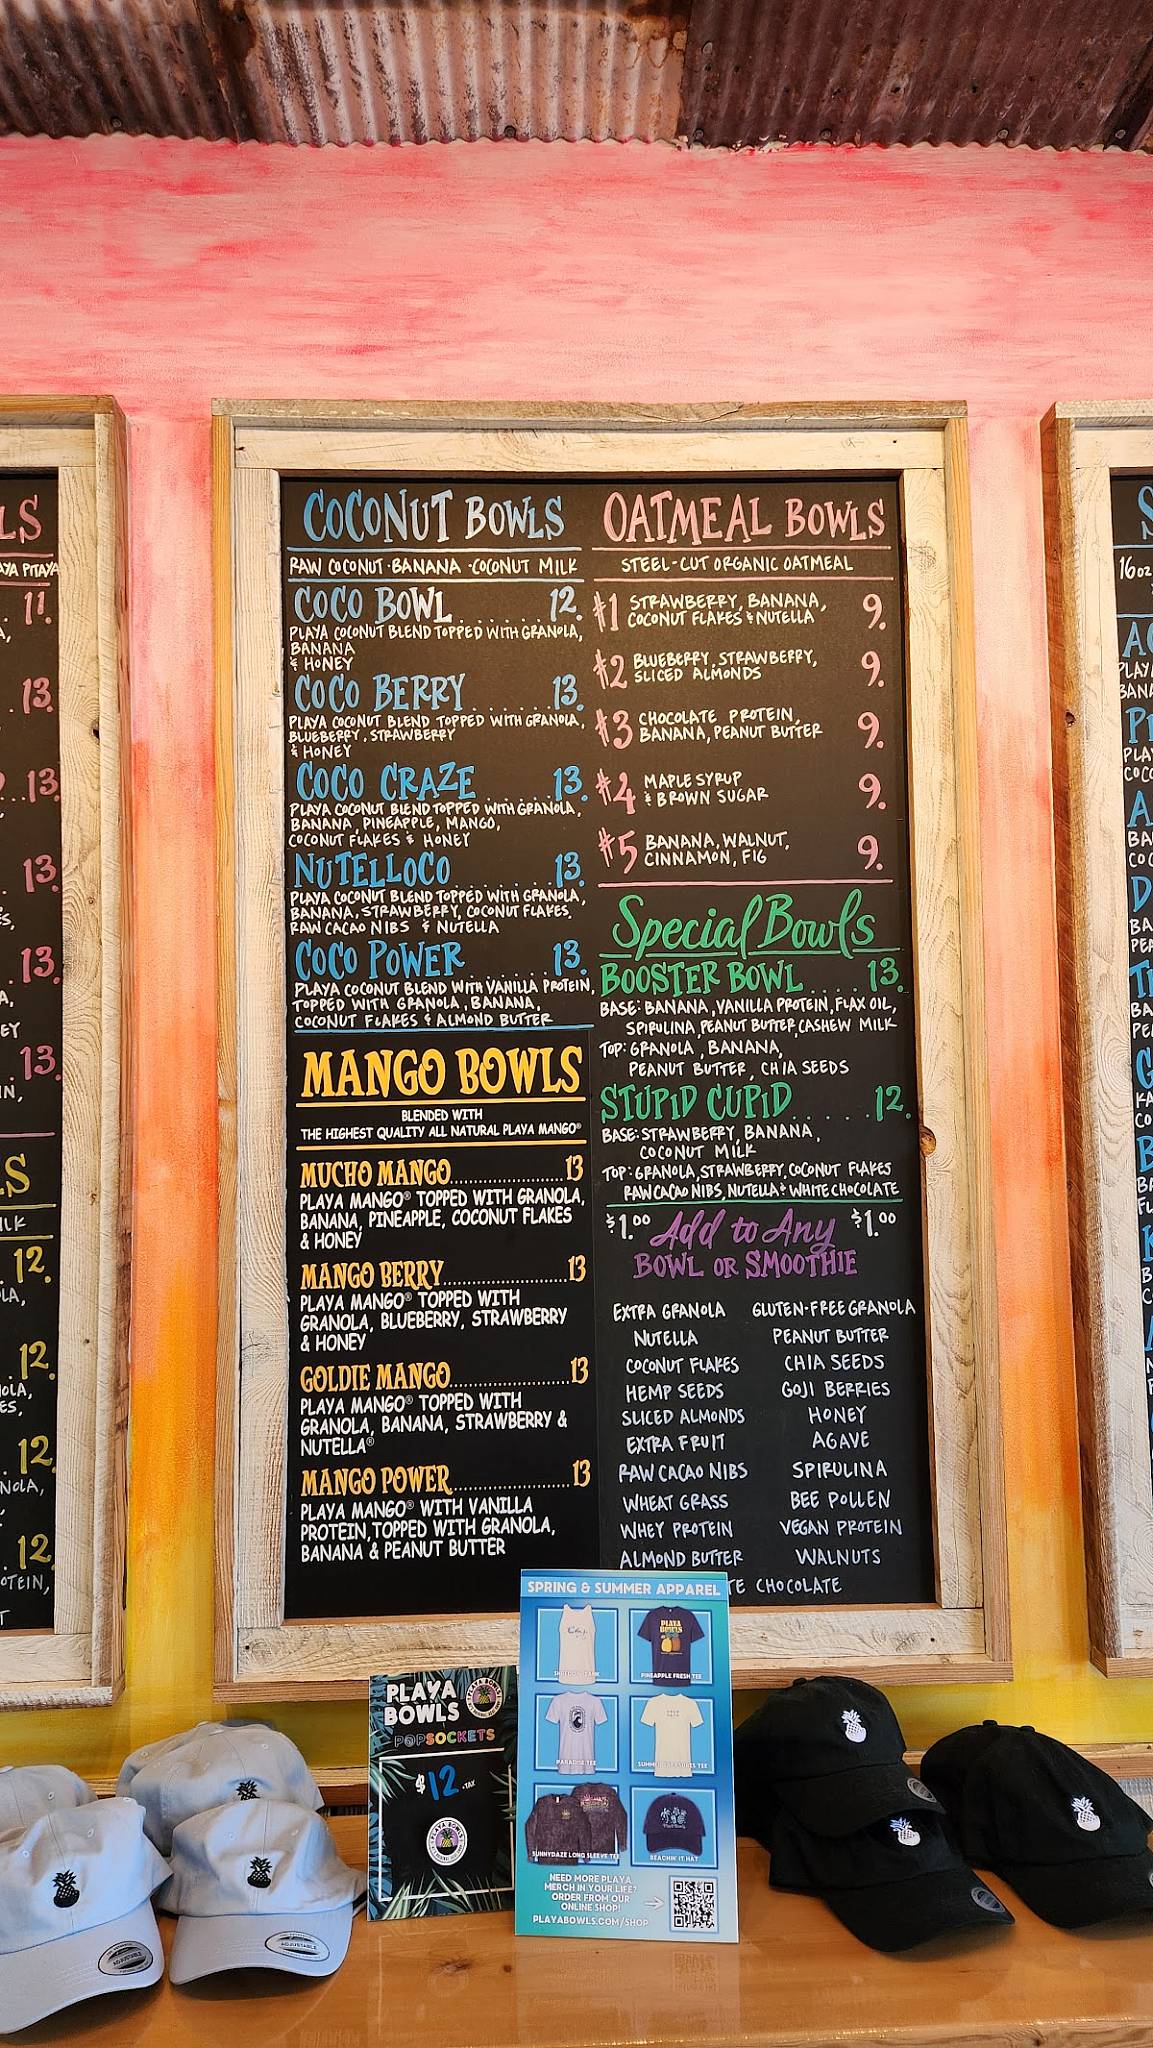 COCONUT BOWLS
RAW COCONUT · BANANA · COCONUT MILK
COCO BOWL........12.
PLAYA COCONUT BLEND TOPPED WITH GRANOLA,
BANANA
& HONEY
COCO BERRY.......13.
PLAYA COCONUT BLEND TOPPED WITH GRANOLA,
BLUEBERRY, STRAWBERRY
& HONEY
COCO CRAZE.......13.
PLAYA COCONUT BLEND TOPPED WITH GRANOLA,
BANANA, PINEAPPLE, MANGO,
COCONUT FLAKES & HONEY
NUTELLOCO........13.
PLAYA COCONUT BLEND TOPPED WITH GRANOLA,
BANANA, STRAWBERRY, COCONUT FLAKES,
RAW CACAO NIBS & NUTELLA
COCO POWER.......13.
PLAYA COCONUT BLEND WITH VANILLA PROTEIN,
TOPPED WITH GRANOLA, BANANA,
COCONUT FLAKES & ALMOND BUTTER
MANGO BOWLS
BLENDED WITH
THE HIGHEST QUALITY ALL NATURAL PLAYA MANGO®
MUCHO MANGO........................13
PLAYA MANGO® TOPPED WITH GRANOLA,
BANANA, PINEAPPLE, COCONUT FLAKES
& HONEY
MANGO BERRY........................13
PLAYA MANGO® TOPPED WITH
GRANOLA, BLUEBERRY, STRAWBERRY
& HONEY
GOLDIE MANGO.......................13
PLAYA MANGO® TOPPED WITH
GRANOLA, BANANA, STRAWBERRY &
NUTELLA®
MANGO POWER........................13
PLAYA MANGO® WITH VANILLA
PROTEIN, TOPPED WITH GRANOLA,
BANANA & PEANUT BUTTER
OATMEAL BOWLS
STEEL-CUT ORGANIC OATMEAL
#1 STRAWBERRY, BANANA, 9.
COCONUT FLAKES & NUTELLA
#2 BLUEBERRY, STRAWBERRY, 9.
SLICED ALMONDS
#3 CHOCOLATE PROTEIN, 9.
BANANA, PEANUT BUTTER
#4 MAPLE SYRUP 9.
& BROWN SUGAR
#5 BANANA, WALNUT, 9.
CINNAMON, FIG
Special Bowls
BOOSTER BOWL....13.
BASE: BANANA, VANILLA PROTEIN, FLAX OIL,
SPIRULINA, PEANUT BUTTER, CASHEW MILK
TOP: GRANOLA, BANANA,
PEANUT BUTTER, CHIA SEEDS
STUPID CUPID.....12.
BASE: STRAWBERRY, BANANA,
COCONUT MILK
TOP: GRANOLA, STRAWBERRY, COCONUT FLAKES
RAW CACAO NIBS, NUTELLA & WHITE CHOCOLATE
$1.00 Add to Any $1.00
BOWL OR SMOOTHIE
EXTRA GRANOLA GLUTEN-FREE GRANOLA
NUTELLA PEANUT BUTTER
COCONUT FLAKES CHIA SEEDS
HEMP SEEDS GOJI BERRIES
SLICED ALMONDS HONEY
EXTRA FRUIT AGAVE
RAW CACAO NIBS SPIRULINA
WHEAT GRASS BEE POLLEN
WHEY PROTEIN VEGAN PROTEIN
ALMOND BUTTER WALNUTS
TE CHOCOLATE
LS
AYA PITAYA
11.
13.
13.
13.
13.
13.
LS
ILK
12.
12.
12.
12.
16oz
PLAYA
BOWLS
POPSOCKETS
$12 +TAX
SPRING & SUMMER APPAREL
PINEAPPLE FRESH TEE
PARADISE TEE
SUNNYDAZE LONG SLEEVE TEE
BEACHIN' IT HAT
NEED MORE PLAYA
MERCH IN YOUR LIFE?
ORDER FROM OUR
ONLINE SHOP!
PLAYABOWLS.COM/SHOP
ADJUSTABLE
ADJUSTABLE